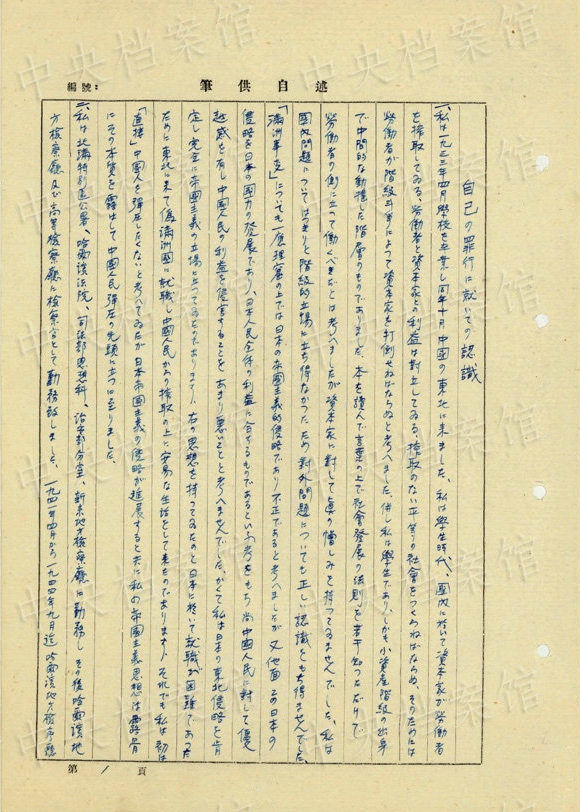 中央档案馆
編號：
筆供自述
自己の罪行に就いての認識
一、私は一九三三年四月學校を卒業し同年十月中國の東北に来ました。私は學生時代、國内に於いて資本家が勞働者
を搾取してゐる、勞働者と資本家との利益は對立してゐる、搾取のない平等の社會をつくらねばならぬ、そのためには
勞働者が階級斗爭によつて資本家を打倒せねばならぬと考へました。併し私は學生であり、しかも小資産階級の出身
で中間的な動搖した階層のものでありました。本を讀んで言葉の上で社會發展の法則を若干知つただけで
勞働者の側に立つて働くべきだとは考へましたが資本家に對して眞の憎しみを持つてゐませんでした。私は
國内問題についてはつきりと階級的立場に立ち得なかつたため對外問題についても正しい認識をもち得ませんでした。
「滿洲事変」についても一應理窟の上では日本の帝國主義的侵略であり不正であると考へましたが又他面この日本の
侵略を日本の國力の發展であり、日本人民全体の利益に合するものであるといふ考をもち尚中國人民に對して優
越感を有し中國人民の利益を侵害することをあまり悪いことと考へませんでした。かくて私は日本の東北侵略を肯
定し完全に帝國主義の立場に立つてゐたのであります。右の思想を持つてゐたのと日本に於いて就職が困難であつた
ために東北に来て偽滿洲國に就職し中國人民からの搾取の上に安易な生活をして来たのであります。それでも私は初は
「直接」中國人を彈圧したくないと考へてゐたが日本帝國主義の侵略が進展すると共に私の帝國主義思想は露骨
にその本質を露はして中國人民彈圧の先頭に立つに至りました。
二、私は北滿特別區公署、哈爾濱法院、司法部思想科、治安部分室、新京地方檢察廳に勤務し その後哈爾濱地
方檢察廳及び高等檢察廳に檢察官として勤務致しました。一九四一年四月から一九四四年九月迄哈爾濱地方檢察廳
第 1 頁